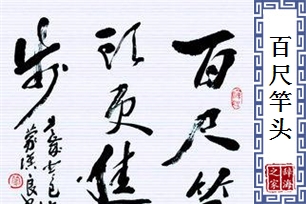 百尺竿
头更进
步
百尺竿头
辞海
之家